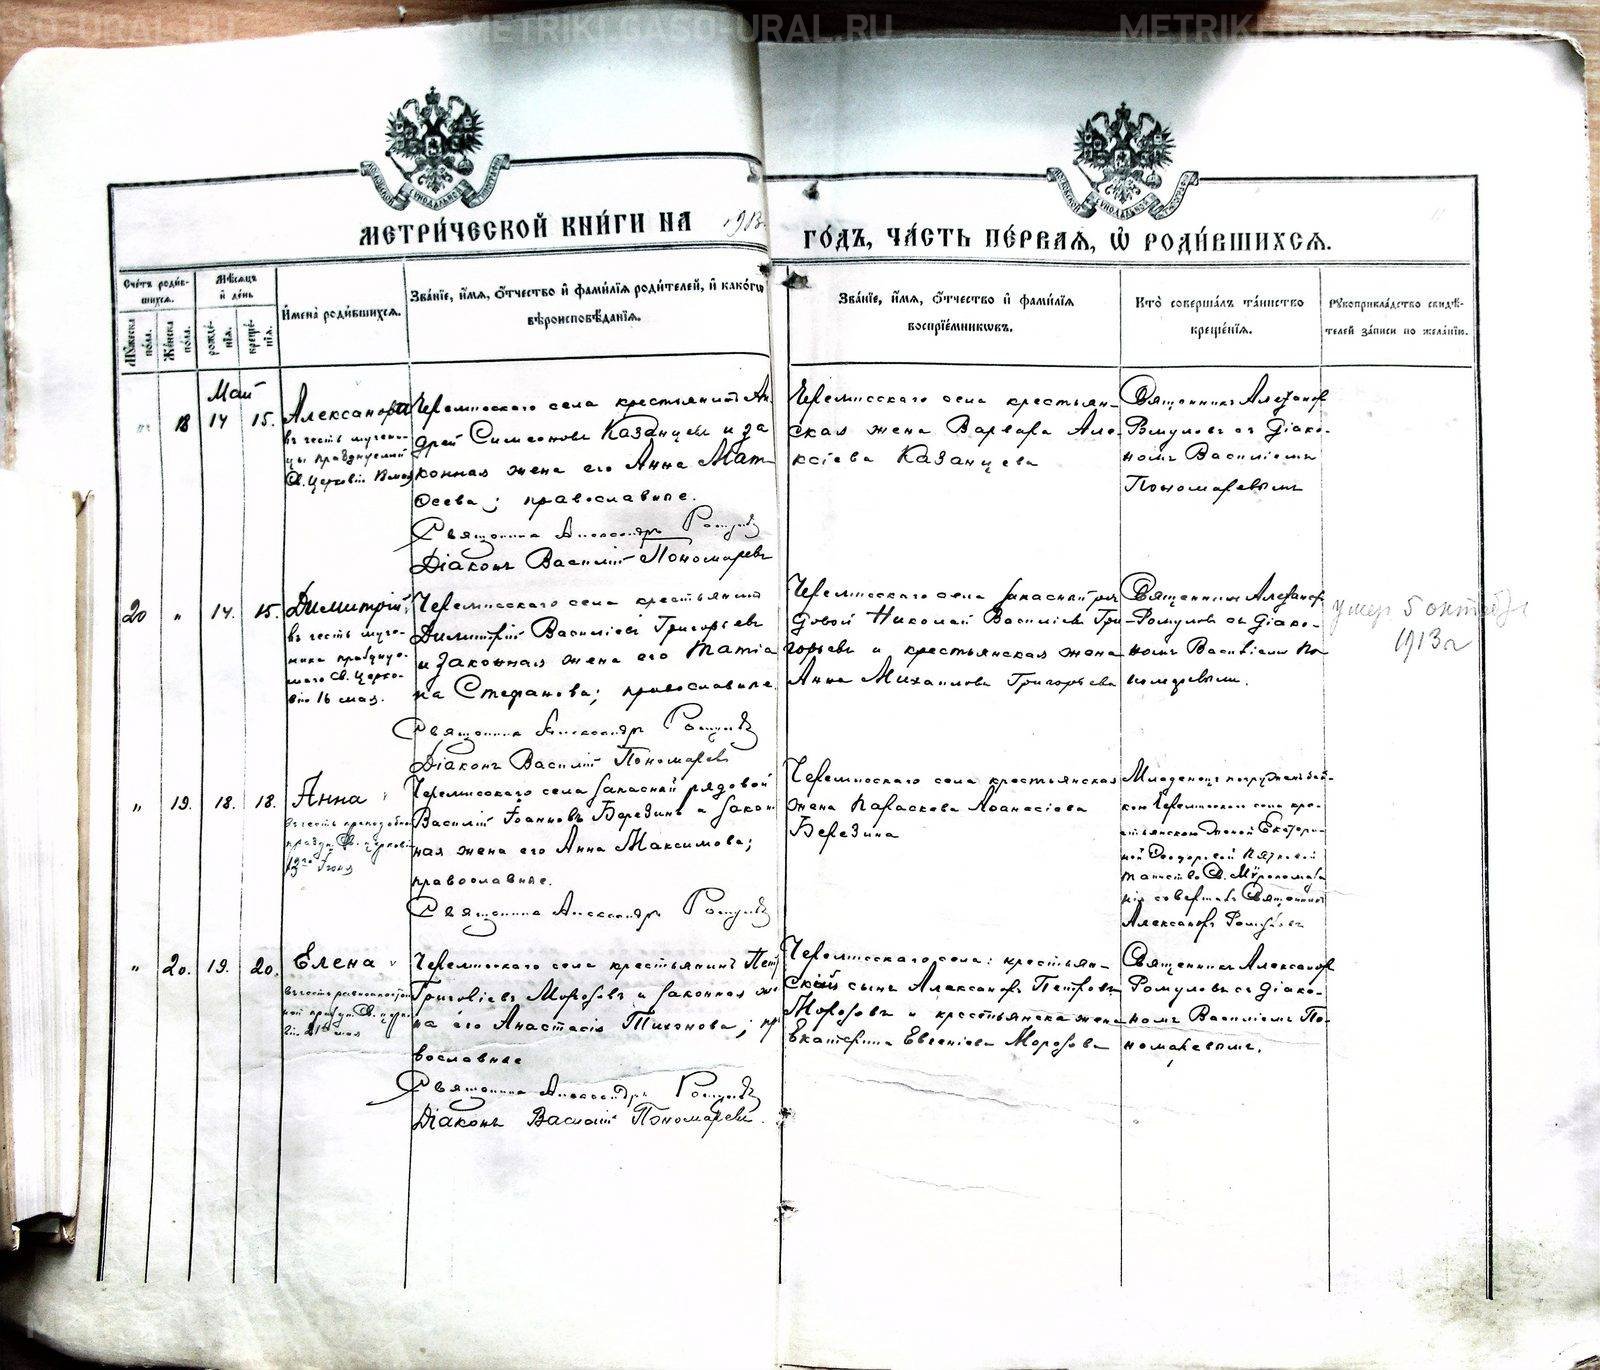 SO-URAL.RU METRIKI.GASO-URAL.RU METRIKI.GASO-URAL.RU
МЕТРИ́ЧЕСКОЙ КНИ́ГИ НА 1913 ГО́ДЪ, ЧА́СТЬ ПЕ́РВАЯ, Ѿ РОДИ́ВШИХСЯ.
Сче́тъ роди́в-
шихся.
Мѣ́сяцъ
и де́нь
Му́жеска по́ла.
Же́нска по́ла.
рожде́-
нія.
креще́-
нія.
Имена̀ роди́вшихся.
Зва́ніе, и́мя, о́тчество и фами́лія роди́телей, и како́гѡ
вѣроисповѣ́данія.
Зва́ніе, и́мя, о́тчество и фами́лія
воспріе́мникѡвъ.
Кто̀ соверша́лъ та́инство
креще́нія.
Рукоприкла́дство свидѣ́-
телей за́писи по жела́нію.
Май
" 18 14 15. Александра
въ честь мучени-
цы празднуемой
Св. Церковію
Черемисскаго села крестьянинъ Ан-
дрей Симеоновъ Казанцевъ и за
конная жена его Анна Мат
ѳеева; православные.
Священникъ Александръ Ромуловъ
Діаконъ Василій Пономаревъ
Черемисскаго села крестьян-
ская жена Варвара Але-
ксіева Казанцева
Священникъ Александр
Ромуловъ съ діако-
номъ Василіемъ
Пономаревымъ
20 " 14. 15. Димитрій
въ честь муче-
ника празднуе-
маго Св. Церко-
вію 16 мая.
Черемисскаго села крестьянинъ
Димитрій Василіевъ Григорьевъ
и законная жена его Татіа
на Стефанова; православные.
Священникъ Александръ Ромуловъ
Діаконъ Василій Пономаревъ
Черемисскаго села запасный ря
довой Николай Василіевъ Гри-
горьевъ и крестьянская жена
Анна Михаилова Григорьева
Священникъ Александр
Ромуловъ съ діако-
номъ Василіемъ По
номаревымъ.
умер 5 октября
1913 г
" 19. 18. 18. Анна
въ честь преподобной
праздн. Св. церковію
13го Іюня
Черемисскаго села запасной рядовой
Василій Іоанновъ Березинъ и закон
ная жена его Анна Максимова;
православные.
Священникъ Александръ Ромуловъ
Черемисскаго села крестьянская
жена Параскева Аѳанасіева
Березина
Младенецъ погруженъ баб-
кою Черемисскаго села кре-
стьянскою женой Екатери-
ной Ѳеодоровой
таинство Св. Мѵропомаза
нія совершилъ Священникъ
Александръ Ромуловъ
" 20. 19. 20. Елена
въ честь равноапостоль
ной праздн. Св. церко
вію 21го мая
Черемисскаго села крестьянинъ Петр
Григоріевъ Морозовъ и законная же
на его Анастасія Тихонова; пра
вославные
Священникъ Александръ Ромуловъ
Діаконъ Василій Пономаревъ.
Черемисскаго села: крестьян-
скій сынъ Александръ Петровъ
Морозовъ и крестьянска жена
Екатерина Евгеніева Морозова
Священникъ Александр
Ромуловъ съ діако-
номъ Василіемъ По-
номаревымъ.